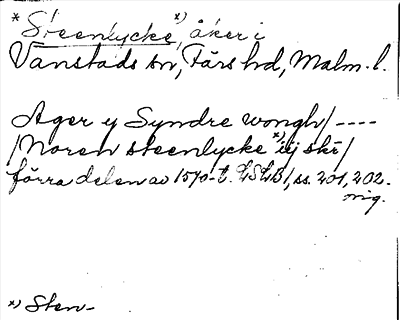 *Steenlycke, x) åker i
Vanstads sn, Färs hd, Malm. l.
Ager y Syndre wongh/----
/Noren steenlycke x) iij skr/
förra delen av 1570-t. LSLB/, ss. 201, 202.
orig.
x) Sten-